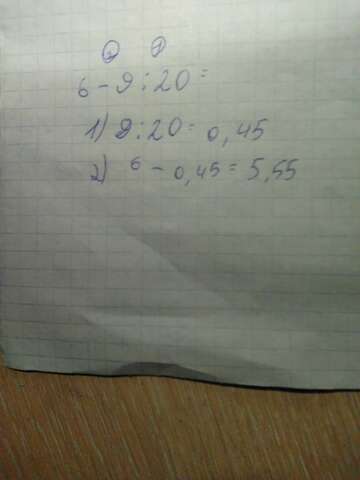 ② ①
6 - 9 : 20 =
1) 9 : 20 = 0,45
2) 6 - 0,45 = 5,55